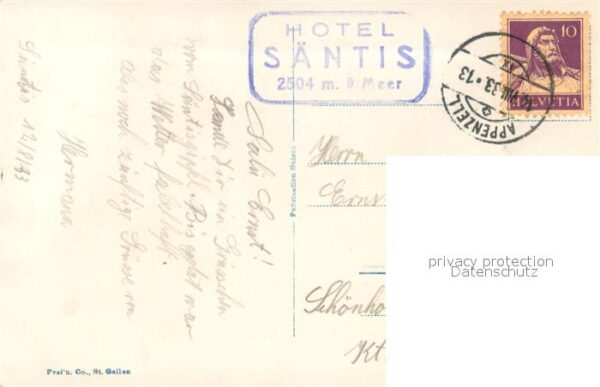 HOTEL
SÄNTIS
2504 m. ü Meer
10
HELVETIA
APPENZELL
VIII.33-13
Säntis 13/8/33
Salü Ernst!
Sende Dir ein Grüsschen
vom Säntisgipfel. Bis jetzt war
das Wetter fabelhaft.
Also noch zünftige Grüsse von
Hermann
Fabrication Suisse
Herrn
Ernst
Schönho
Kt.
privacy protection
Datenschutz
Frei u. Co., St. Gallen